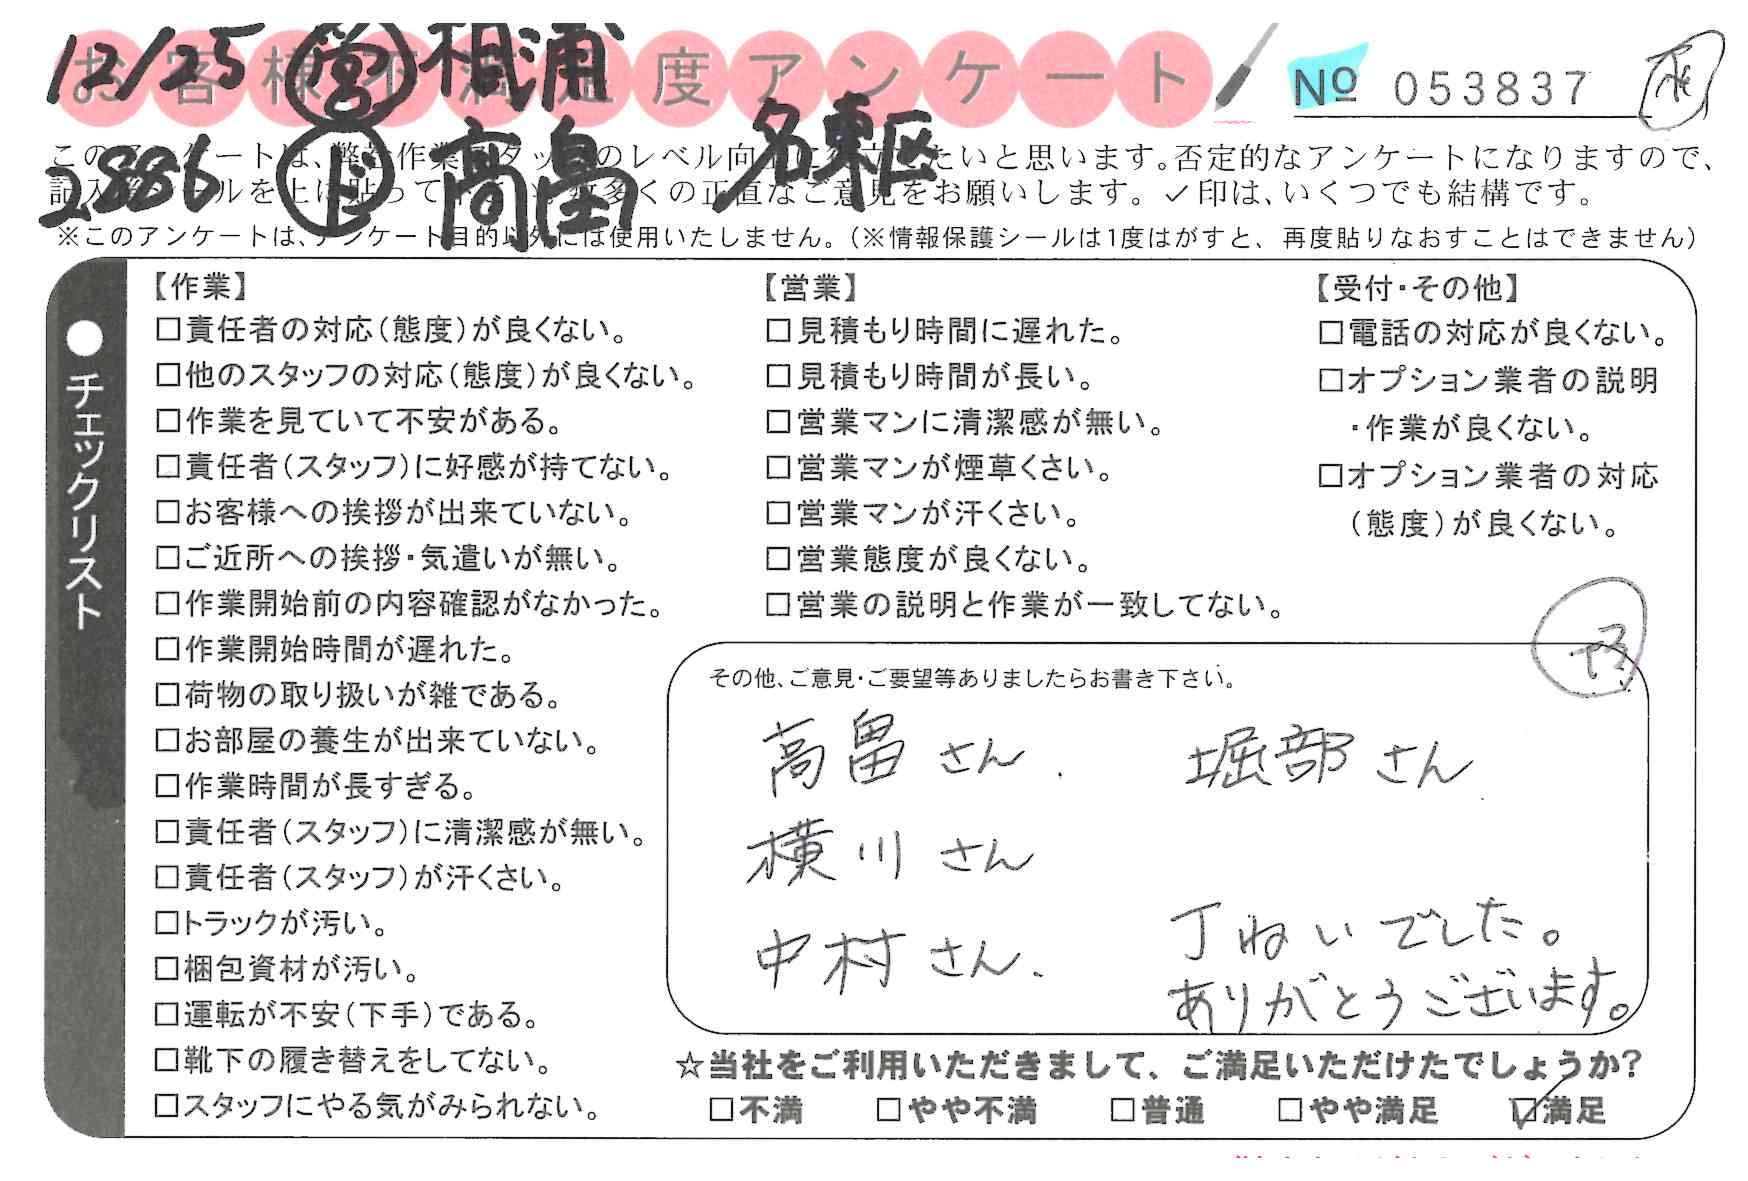 12/25 営 相浦
お客様不満足度アンケート
No 053837
2886 ド 高畠 名東区
このアンケートは、弊社作業スタッフのレベル向上に役立てたいと思います。否定的なアンケートになりますので、
記入後シールを上に貼って下さい。数多くの正直なご意見をお願いします。✓印は、いくつでも結構です。
※このアンケートは、アンケート目的以外には使用いたしません。(※情報保護シールは1度はがすと、再度貼りなおすことはできません)
●チェックリスト
【作業】
□責任者の対応(態度)が良くない。
□他のスタッフの対応(態度)が良くない。
□作業を見ていて不安がある。
□責任者(スタッフ)に好感が持てない。
□お客様への挨拶が出来ていない。
□ご近所への挨拶・気遣いが無い。
□作業開始前の内容確認がなかった。
□作業開始時間が遅れた。
□荷物の取り扱いが雑である。
□お部屋の養生が出来ていない。
□作業時間が長すぎる。
□責任者(スタッフ)に清潔感が無い。
□責任者(スタッフ)が汗くさい。
□トラックが汚い。
□梱包資材が汚い。
□運転が不安(下手)である。
□靴下の履き替えをしてない。
□スタッフにやる気がみられない。
【営業】
□見積もり時間に遅れた。
□見積もり時間が長い。
□営業マンに清潔感が無い。
□営業マンが煙草くさい。
□営業マンが汗くさい。
□営業態度が良くない。
□営業の説明と作業が一致してない。
【受付・その他】
□電話の対応が良くない。
□オプション業者の説明
・作業が良くない。
□オプション業者の対応
(態度)が良くない。
その他、ご意見・ご要望等ありましたらお書き下さい。
高畠さん. 堀部さん
横川さん
中村さん. 丁ねいでした。
ありがとうございます。
☆当社をご利用いただきまして、ご満足いただけたでしょうか?
□不満 □やや不満 □普通 □やや満足 ☑満足